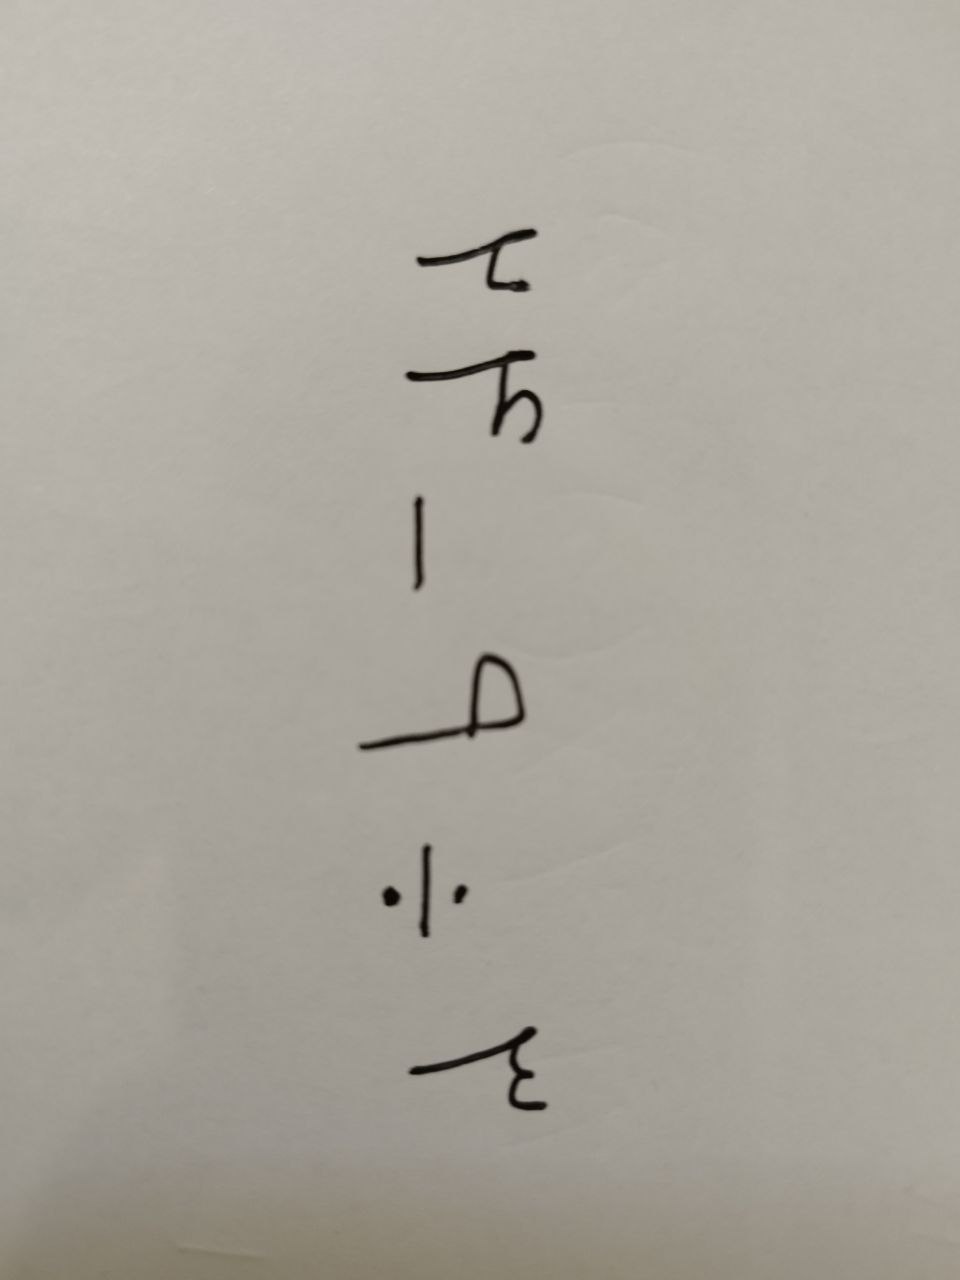 ۲۴ − ۹ ÷ ۳